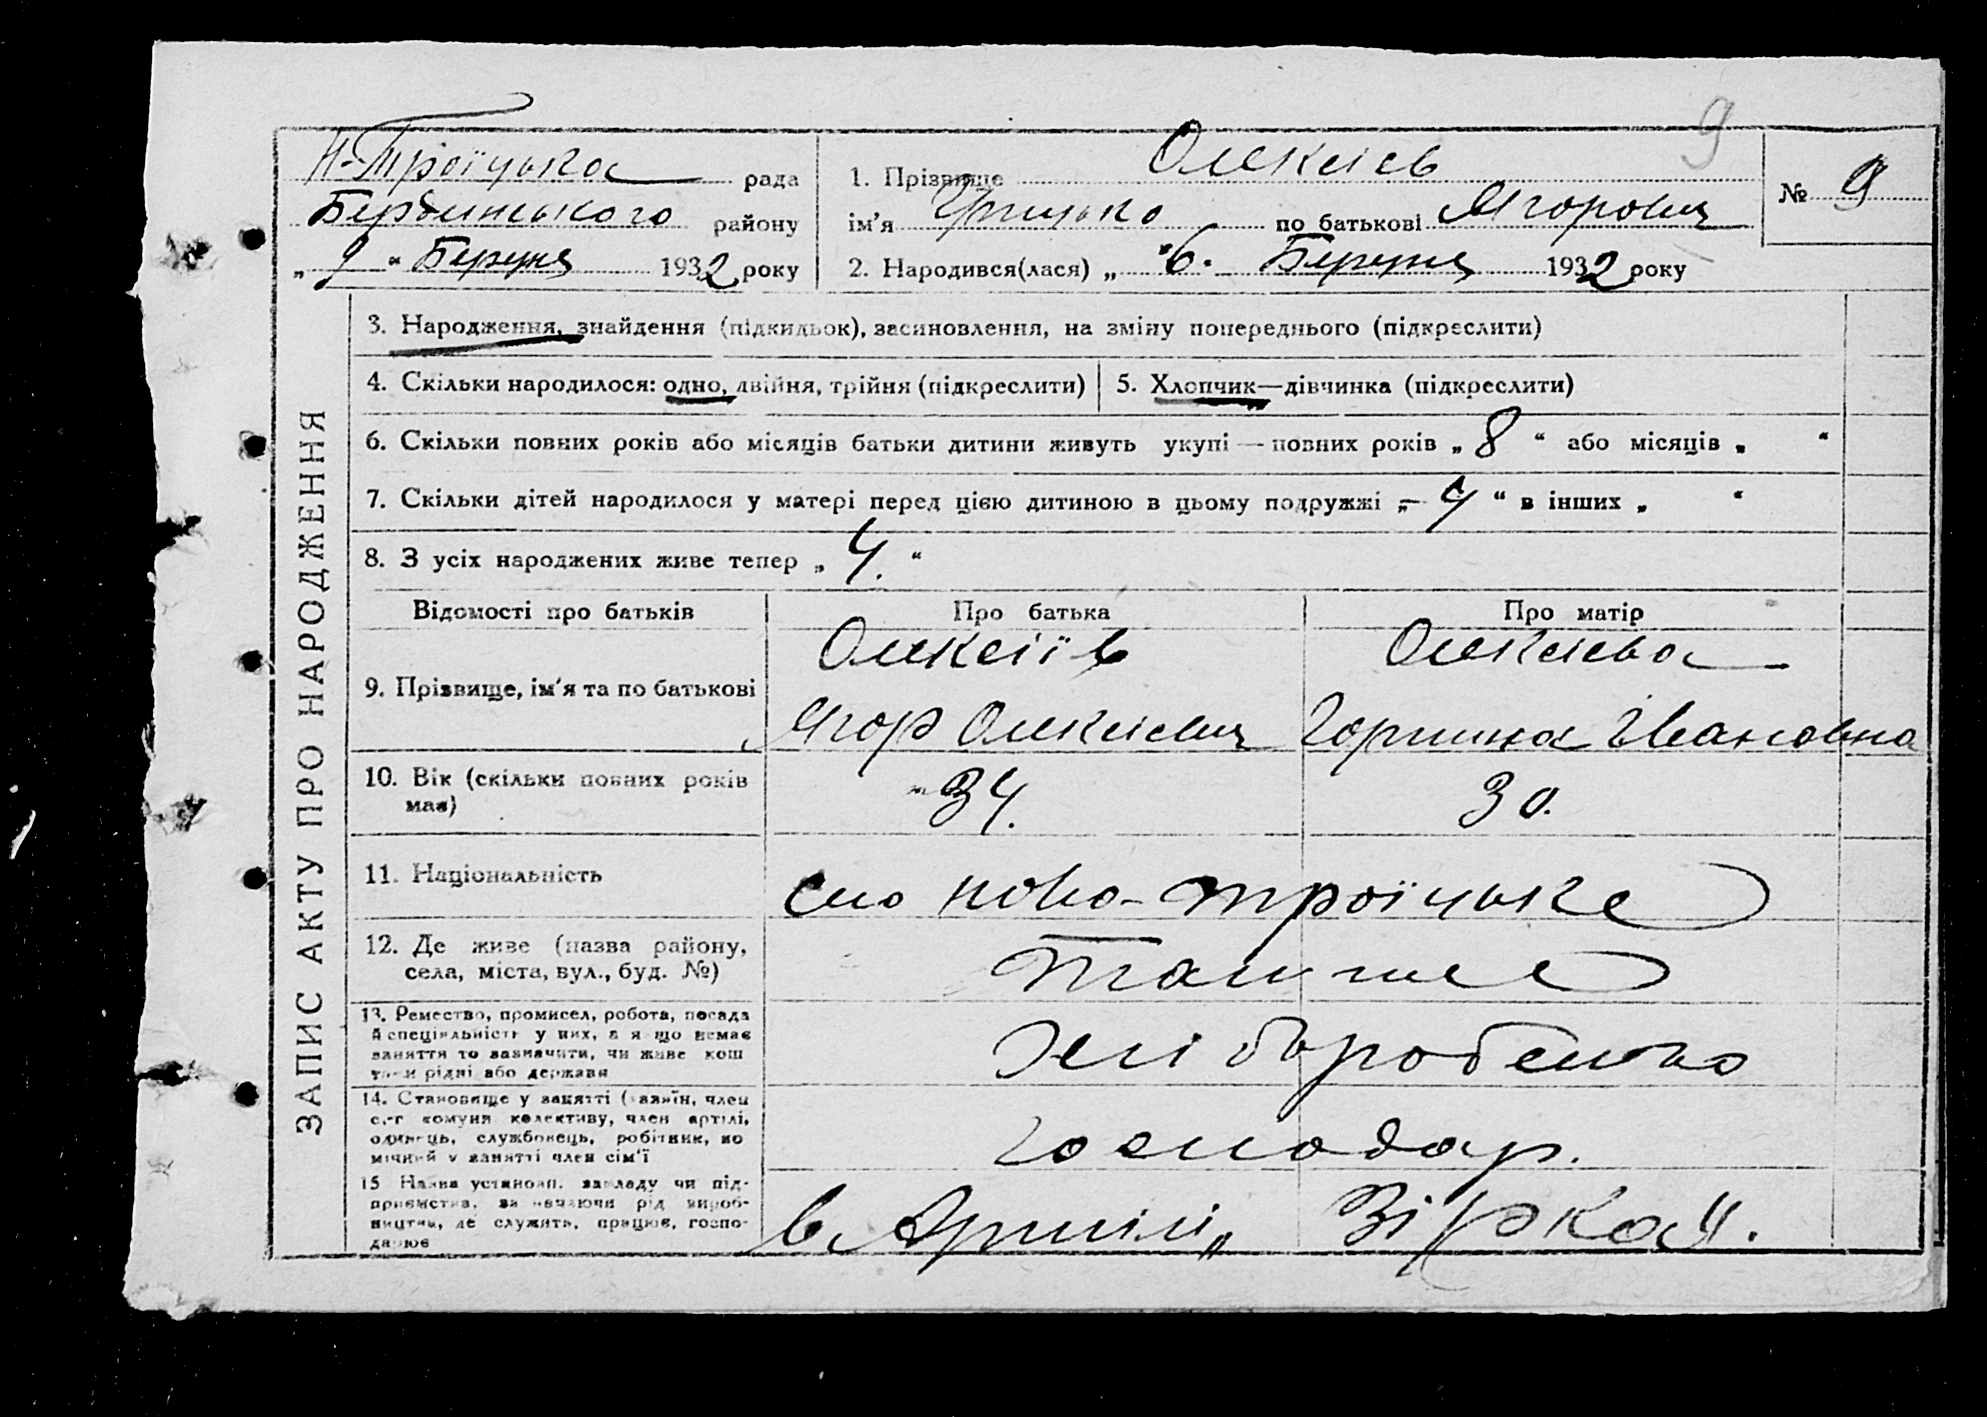 9
Н-Троїцька рада
Бердинського району
„ 9 “ Березня 1932 року
1. Прізвище Олексієв
ім’я Грицько по батькові Ягорович
2. Народився(лася) „ 6. Березня 1932 року
№ 9
ЗАПИС АКТУ ПРО НАРОДЖЕННЯ
3. Народження, знайдення (підкидьок), засиновлення, на зміну попереднього (підкреслити)
4. Скільки народилося: одно, двійня, трійня (підкреслити)
5. Хлопчик—дівчинка (підкреслити)
6. Скільки повних років або місяців батьки дитини живуть укупі — повних років „ 8 “ або місяців „ “
7. Скільки дітей народилося у матері перед цією дитиною в цьому подружжі „ 4 “ в інших „ “
8. З усіх народжених живе тепер „ 4. “
Відомості про батьків Про батька Про матір
9. Прізвище, ім’я та по батькові
Олексіїв Олексієва
Ягор Олексієвич Горпина Івановна
10. Вік (скільки повних років
має)
34. 30.
11. Національність
село Ново-Троїцьке
12. Де живе (назва району,
села, міста, вул., буд. №)
13. Ремество, промисел, робота, посада
й спеціяльність у них, а якщо немає
заняття то зазначити, чи живе кош
том рідні або держави
Хліборобство
14. Становище у занятті (хазяїн, член
с.-г комуни колективу, член артілі,
одинець, службовець, робітник, по
мічний у занятті член сім’ї
господар.
15 Назва установи, закладу чи під-
приємства, зазначаючи рід вироб-
ництва, де служить, працює, госпо-
дарює
в Артілі „Зірка“.